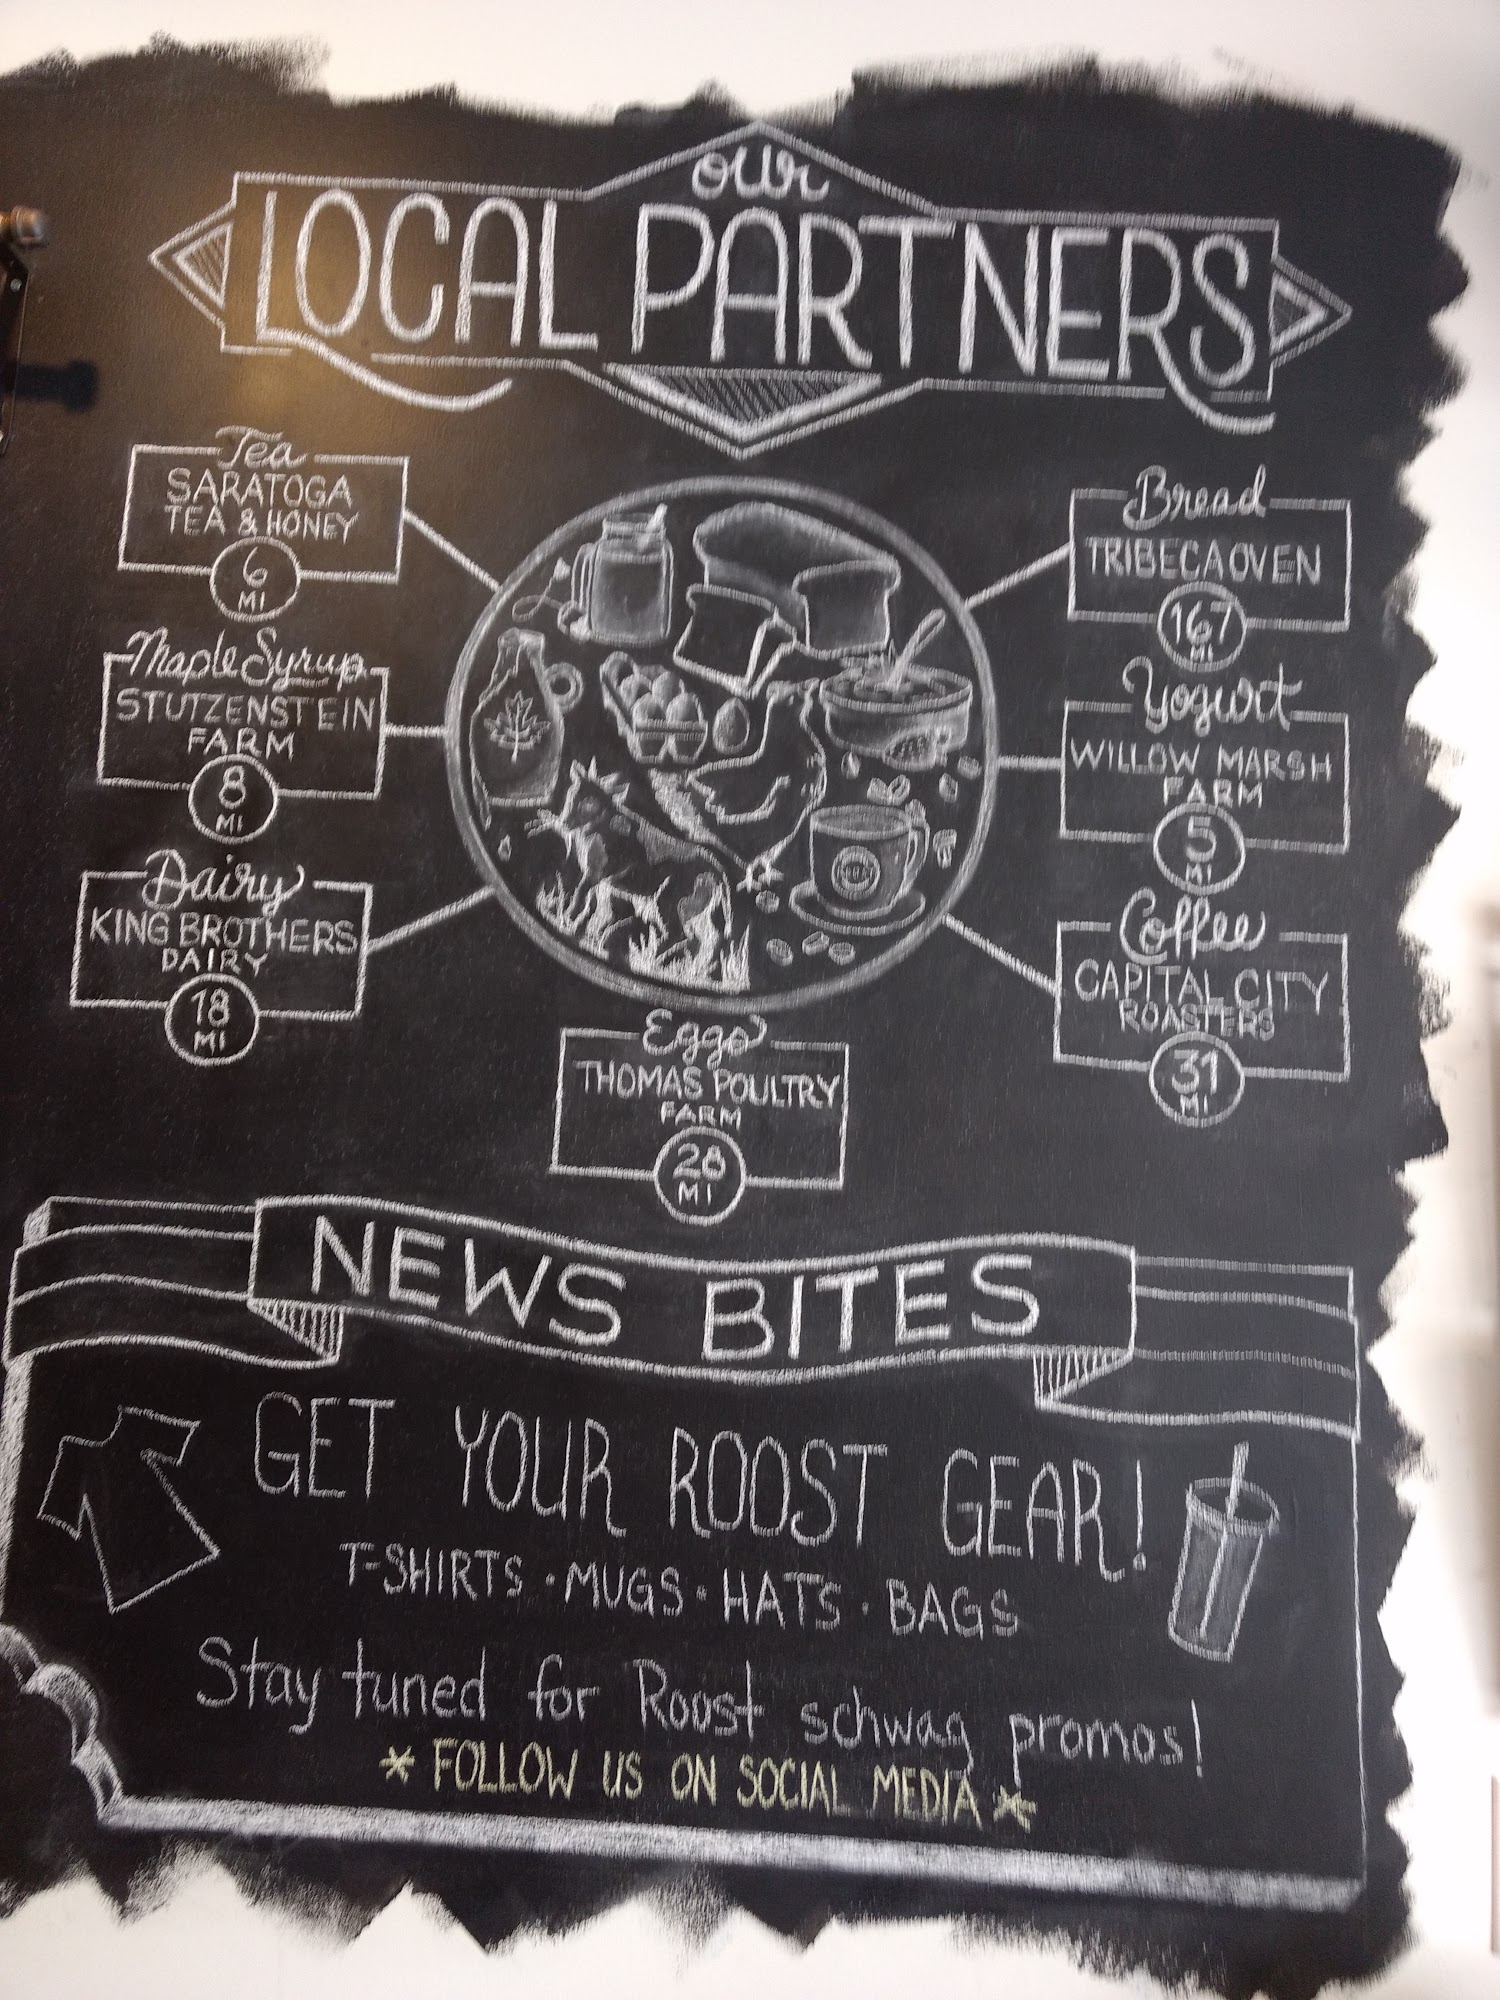 our
LOCAL PARTNERS
Tea
SARATOGA
TEA & HONEY
6
MI
Maple Syrup
STUTZENSTEIN
FARM
8
MI
Dairy
KING BROTHERS
DAIRY
18
MI
Bread
TRIBECAOVEN
167
MI
Yogurt
WILLOW MARSH
FARM
5
MI
Coffee
CAPITAL CITY
ROASTERS
31
MI
Eggs
THOMAS POULTRY
FARM
28
MI
NEWS BITES
GET YOUR ROOST GEAR!
T-SHIRTS · MUGS · HATS · BAGS
Stay tuned for Roost schwag promos!
* FOLLOW US ON SOCIAL MEDIA *